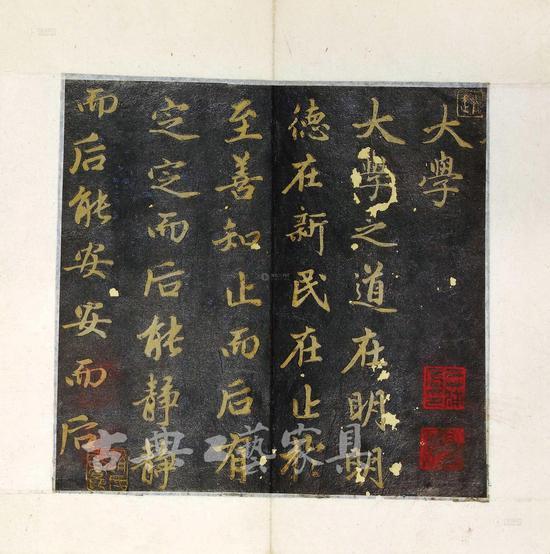 大學
大學之道在明明
德在新民在止於
至善知止而后有
定定而后能静静
而后能安安而后
古典工藝家具